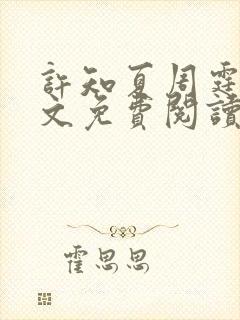 許知夏周霆
文免費閱讀
霍思思